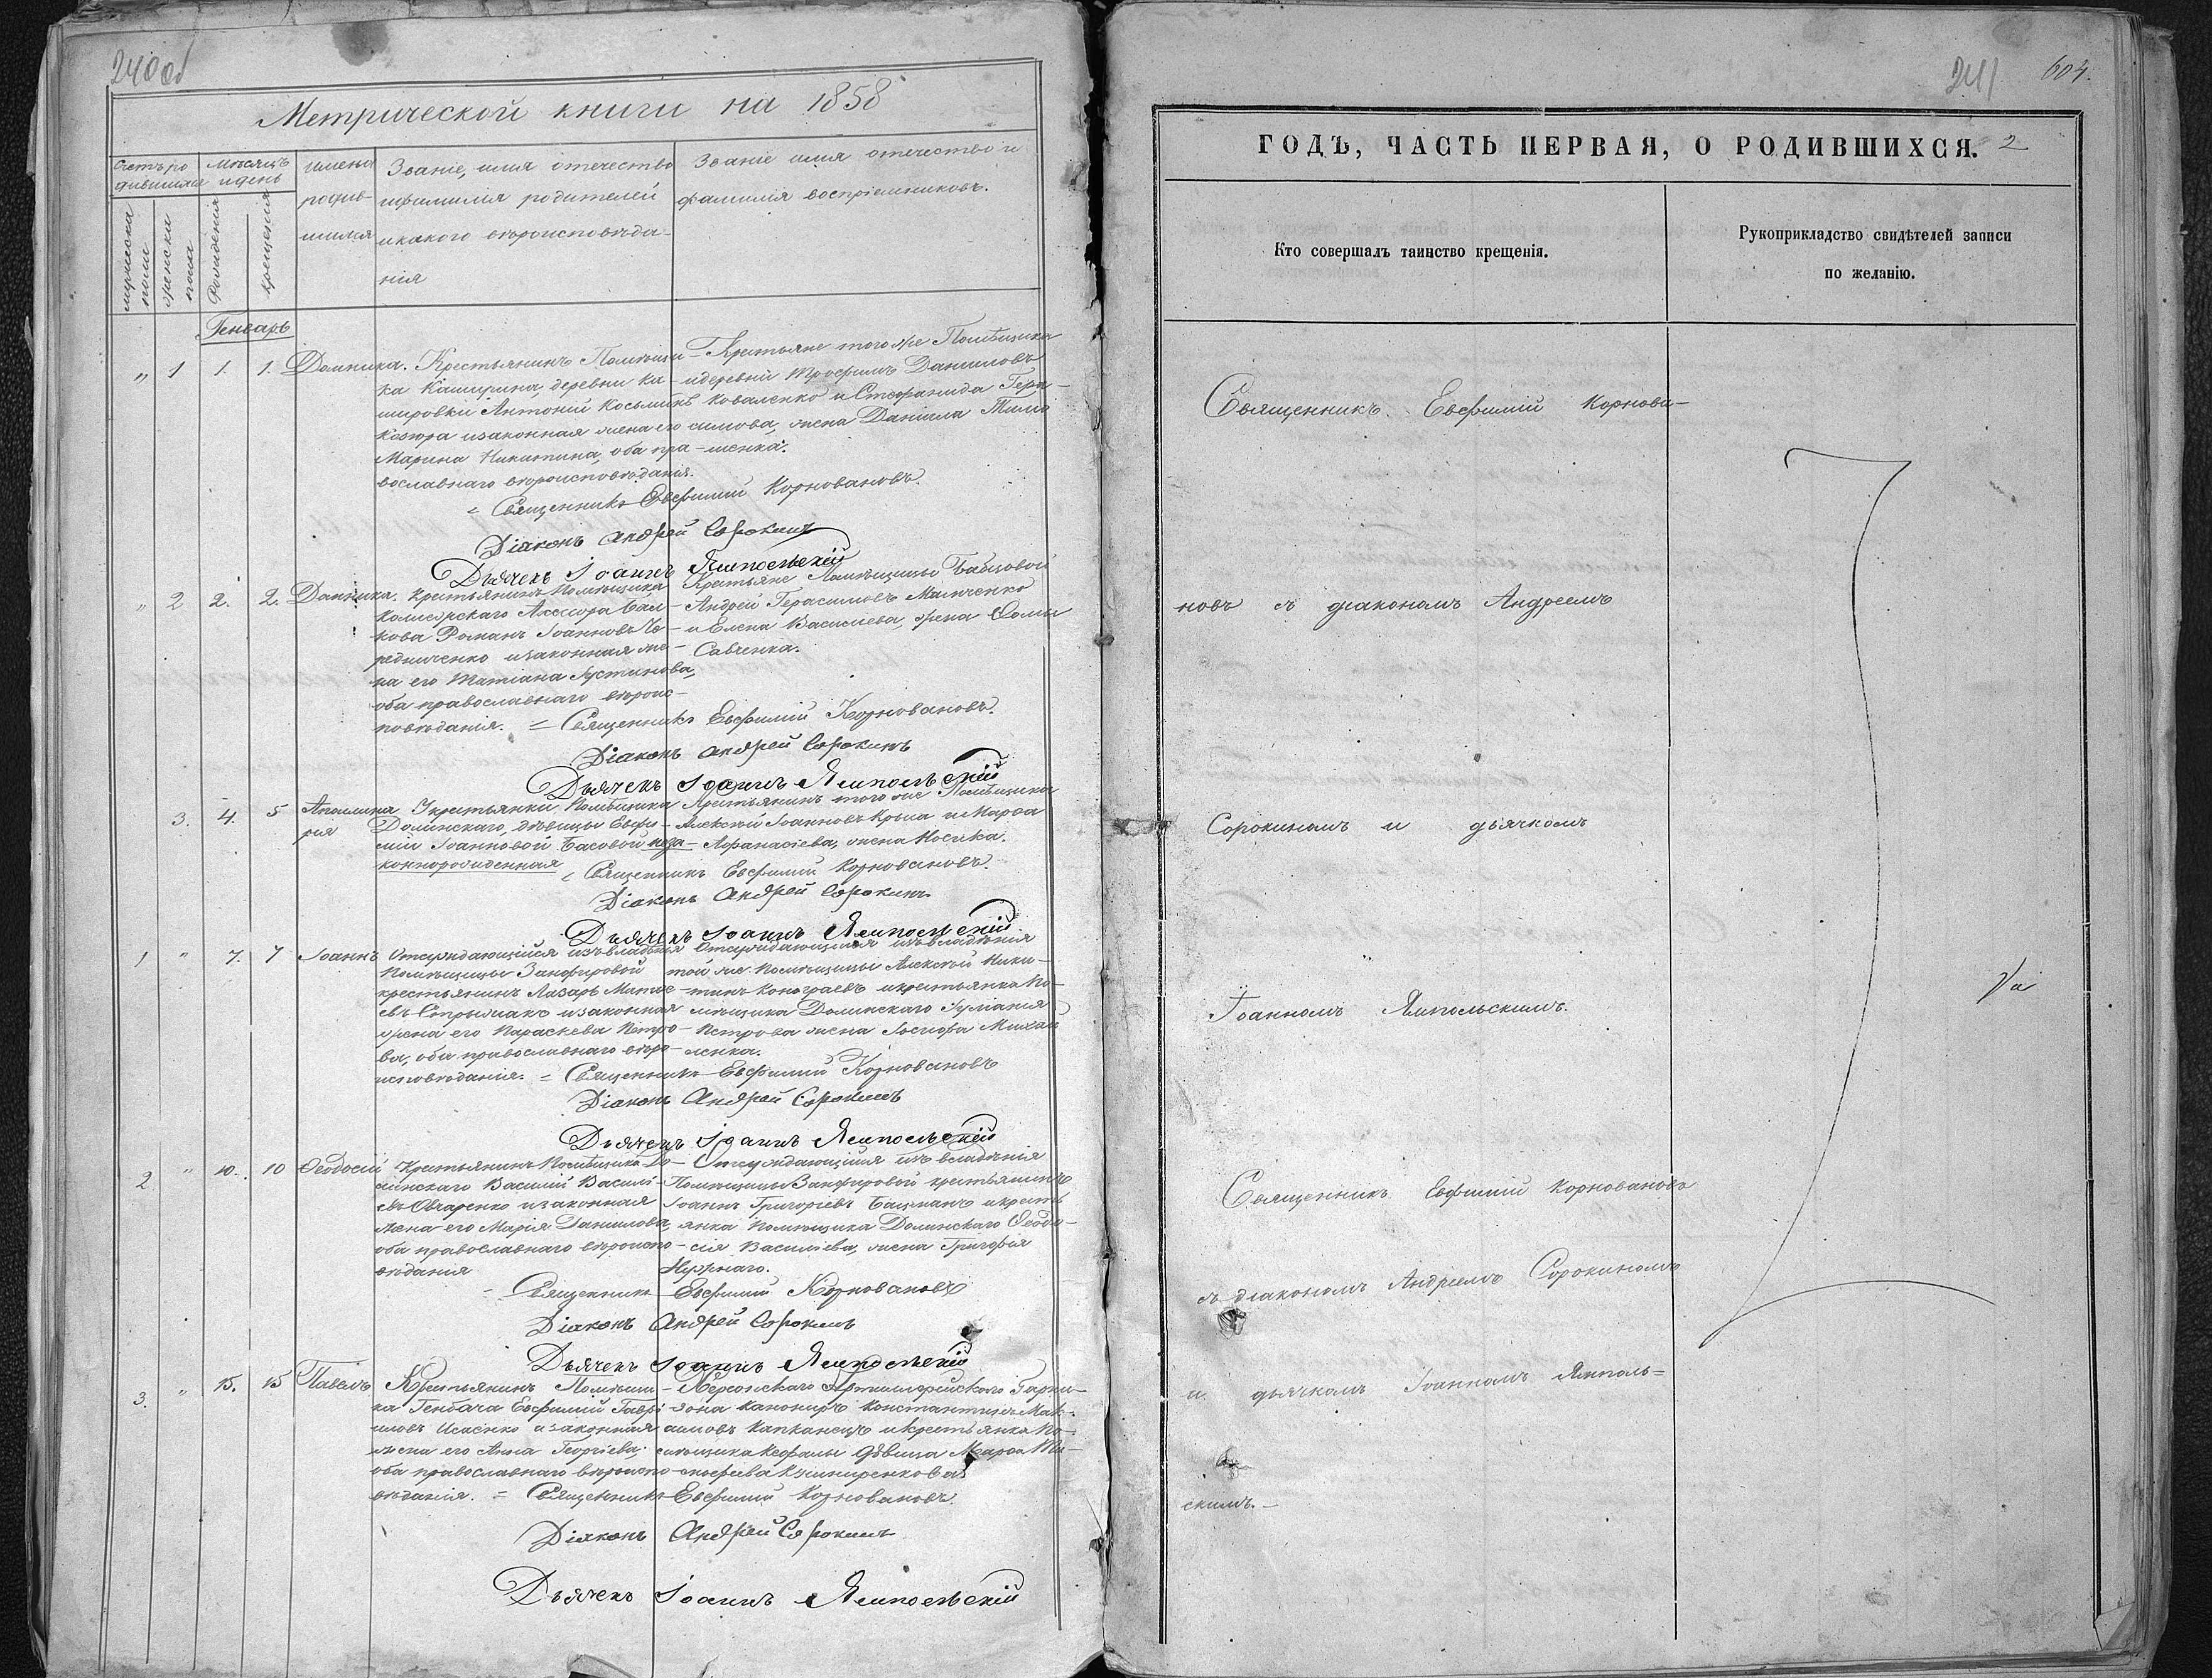 240об
Метрической книги на 1858
Счетъ ро
дившихся
Мѣсяцъ
и день
мужеска
пола
женска
пола
Рожденія
Крещенія
Имена
родив-
шихся
Званіе, имя отечество
и фамилія родителей
и какого вѣроисповѣда-
нія
Званіе имя отчество и
фамилія воспріемниковъ.
Генварь
" 1 1. 1. Домника.
Крестьянинъ Помѣщи-
ка Каширина, деревни Ка-
шировки Антоній Косьминъ
Козюра и законная жена его
Марина Никитина, оба пра-
вославнаго вѣроисповѣданія.
Крестьяне того же Помѣщика
и деревни Трофимъ Даниловъ
Коваленко и Стефанида Гера-
симова, жена Даніила Тимо-
шенка.
= Священникъ Евфимій Корновановъ.
Діаконъ Андрей Сорокинъ
Дьячекъ Іоаннъ Ямпольскій
" 2 2. 2. Домника.
Крестьянинъ Помѣщика
Колежскаго Ассесора Бал-
кова Романъ Іоанновъ Че-
редниченко и законная же-
на его Татіана Іустинова,
оба православнаго вѣроис-
повѣданія.
Крестьяне Помѣщицы
Андрей Герасимовъ
и Елена Василиева, жена Фомы
Савченка.
= Священникъ Евфимій Корновановъ.
Діаконъ Андрей Сорокинъ
Дьячекъ Іоаннъ Ямпольскій
3. 4. 5 Аполлина
рія
У крестьянки Помѣщика
Долинскаго, дѣвицы Евфи-
міи Іоанновой Басовой неза-
коннорожденная
Крестьянинъ того же Помѣщика
Алексѣй Іоанновъ Крыса и Марфа
Афанасіева, жена Носика.
Священникъ Евфимій Корновановъ.
Діаконъ Андрей Сорокинъ
Дьячекъ Іоаннъ Ямпольскій
1 " 7. 7 Іоаннъ
Отсуждающійся изъ владѣнія
Помѣщицы Занфировой
крестьянинъ Лазарь Матѳе-
евъ и законная
жена его Параскева Петро-
ва, оба православнаго вѣро-
исповѣданія.
Отсуждающійся изъ владѣнія
той же помѣщицы Алексѣй Ники-
тинъ и крестьянка По-
мѣщика Долинскаго Іуліанія
Петрова жена Іосифа Михай
ленка.
= Священникъ Евфимій Корновановъ
Діаконъ Андрей Сорокинъ
Дьячекъ Іоаннъ Ямпольскій
2 " 10. 10 Ѳеодосій
Крестьянинъ Помѣщика До-
линскаго Василій Василі-
евъ Овчаренко и законная
жена его Марія Данилова,
оба православнаго вѣроиспо-
вѣданія
Отсуждающійся изъ владѣнія
Помѣщицы Занфировой крестьянинъ
Іоаннъ Григоріевъ Бацманъ и кресть
янка помѣщика Долинскаго Ѳеодо-
сія Василіева, жена Григорія
Нужнаго.
= Священникъ Евфимій Корновановъ
Діаконъ Андрей Сорокинъ
Дьячекъ Іоаннъ Ямпольскій
3. " 15. 15 Павелъ
Крестьянинъ Помѣщи-
ка Гендача Евфимій Гаврі-
иловъ Исаенко и законная
жена его Анна Георгіева;
оба православнаго вѣроиспо-
вѣданія.
Херсонскаго Артилерійскаго Гарни-
зона Канониръ Константинъ Мак-
симовъ Капканецъ и крестьянка По-
мѣщика Кефалы дѣвица Марфа Ти-
мофеева Кушниренкова
= Священникъ Евфимій Корновановъ.
Діаконъ Андрей Сорокинъ
Дьячекъ Іоаннъ Ямпольскій
241 604.
ГОДЪ, ЧАСТЬ ПЕРВАЯ, О РОДИВШИХСЯ. 2
Кто совершалъ таинство крещенія.
Рукоприкладство свидѣтелей записи
по желанію.
Священникъ Евфимій Корнова-
новъ съ діакономъ Андреемъ
Сорокинымъ и дьячкомъ
Іоанномъ Ямпольскимъ.
Священникъ Евфимій Корновановъ
съ діакономъ Андреемъ Сорокиномъ
и дьячкомъ Іоанномъ Ямполь=
скимъ.-